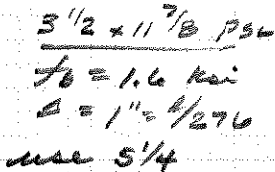 3 1/2 x 11 7/8 PSL
fb = 1.6 ksi
Δ = 1" = L/276
use 5 1/4